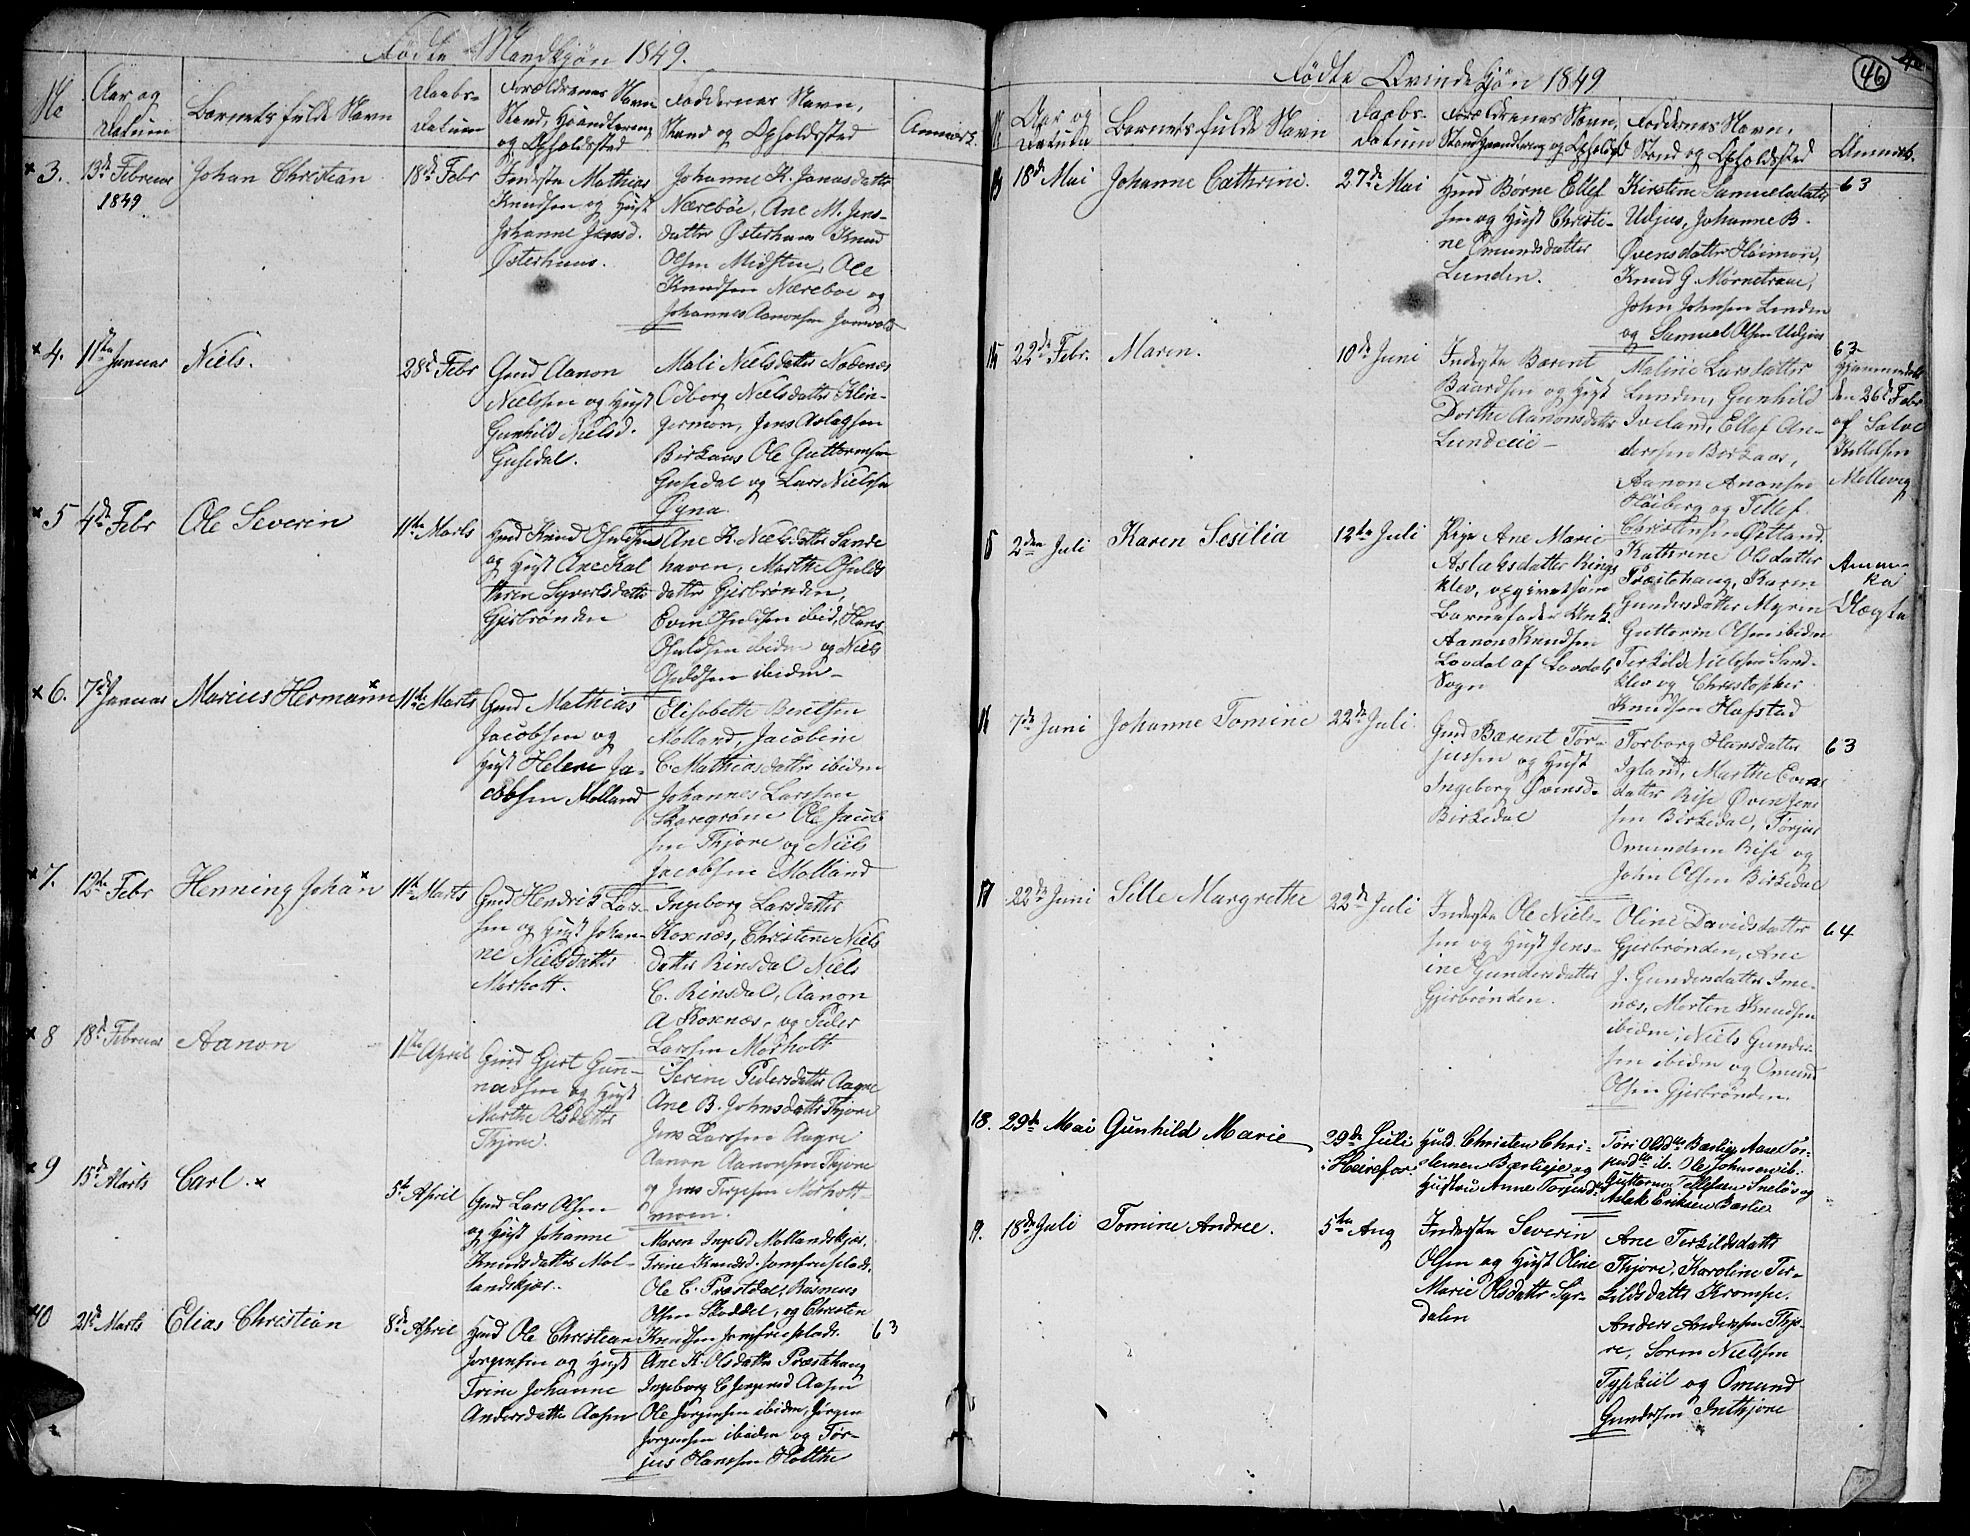 Fødte Mandkjøn 1849.
No
Aar og
Datum
Barnets fulde Navn
Daabs-
Datum
Forældrenes Navn
Stand, Haandtering
og Opholdssted
Faddernes Navn,
Stand og Opholdssted
Anmærk.
3.
13de Februar
1849
Johan Christian
18de Febr
Inderste Mathias
Knudsen og Hust
Johanne Jensd.
Østerhuus.
Johanne K. Jonasdatter
Nærebøe, Ane M. Jens-
datter Østerhuus Knud
Olsen Midsten, Ole
Knudsen Nærebøe og
Johannes Aanonsen
4.
11te Januar
Niels.
28de Febr
Gmd Aanon
Nielssen og Hust
Gunhild Nielsd.
Gusedal.
Mali Nielsdatter
Odborg Nielsdatter Klin-
germon, Jens Aslagsen
Birkaas Ole Guttormsen
Gusedal og Lars Nielssen
Øyna.
5
4de Febr
Ole Severin
11te Marts
Hmd Knud
og Hust Ane Kat
harine Syvertsdatter
Gjerbrønden
Ane K. Nielsdatter Sande
haven, Marthe
datter Gjerbrønden,
Even ibid, Hans
ibidem og Niels
ibidem
6.
7de Januar
Marius Hermann
11te Marts
Gmd Mathias
Jacobsen og
Hust Helene Ja-
cobsen Molland
Elisabeth Berntsen
Molland, Jacobine
C. Mathiasdatter ibidem
Johannes Larssen
Skaregrøm Ole Jacob
sen Thjore og Niels
Jacobsen Molland
7.
12te Febr
Henning Johan
11te Marts
Gmd Hendrik Lars-
sen og Hust Johan-
ne Nielsdatter
Morholt.
Ingeborg Larsdatter
Koxnæs, Christine Niels
datter Rinsdal Niels
C. Rinsdal, Aanon
A Koxnæs, og Peder
Larssen Morholt
8
18de Februar
Aanon
1te April
Gmd Gjert Gun-
Hust
Marthe Olsdatter
Thjore.
Serine Pedersdatter Aagre
Ane B. Johnsdatter Thjore
Jens Larssen Aagre
Aanon Aanonsen Thjore
og Jens Terjesen Morholt-
moen
9
15de Marts
Carl.
5te April
Gmd Lars Olsen
og Hust Johanne
Knudsdatter Mol-
landskjær.
Maren Ingebd Mollandskjær.
Trine Knudsd. Jomfrueplads.
Ole C. Præstdal, Rasmus
Olsen Skaddel, og Christen
Knudsen Jomfrueplads.
10
21de Marts
Elias Christian
8de April
Hmd Ole Christian
Jørgensen og Hust
Trine Johanne
Andersdatter Aasen
Ane K. Olsdatter Præstehaug
Ingeborg C Jørgensd Aasen
Ole Jørgensen ibidem, Jørgen
Jørgensen ibidem og Tør-
jus Hanssen Holthe
63
Fødte Qvindekjøn 1849
46
Aar og
Datum
Barnets fulde Navn
Daabs-
Datum
Forældrenes Navn,
Stand Haandtering og Opholdssted
Faddernes Navn,
Stand og Opholdssted
Anmærk.
13
18de Mai
Johanne Cathrine.
27de Mai
Hmd Børne Ellef
sen og Hust Christi-
ne Omundsdatter
Lunden.
Kirstine Samuelsdatter
Udjus, Johanne B.
Øvensdatter Høimon,
Knud G. Mørnetrøe,
John Johnsen Lunden
og Samuel Olsen Udjus
63
14
22de Febr.
Maren.
10de Juni
Inderste Bærent
Baardsen og Hust
Dorthe Aanonsdatter
Lundeie
Maline Larsdatter
Lunden, Gunhild
Iveland, Ellef An-
derssen Birkaas,
Aanon Ananson
Høiberg og Tellef
Christensen Østland.
63
Hjemmedøbt
den 26de Febr
af Salve
Kittelsen
Mollevig
15
2den Juli
Karen Sesilia
12te Juli
Pige Ane Marie
Aslaksdatter Rings
klev, opgivet som
Barnefader Unk.
Aanon Knudsen
Lovdal af Lovdals
Sogn
Kathrine Olsdatter
Præstehaug, Karen
Gundersdatter Myren
Guttorm Olsen ibidem
Terkild Nielssen Sand-
klev og Christopher
Knudsen Hafstad
Amme-
ka
Slægte
16
7de Juni
Johanne Tomine
22de Juli
Gmd Bærent Tor-
jussen og Hust
Ingeborg Øvensd.
Birkedal
Torborg Hansdatter
Igland, Marthe Evens
datter Rise Øven Jens
sen Birkedal, Tørjus
Omundsen Rise og
John Olsen Birkedal
63
17
22de Juni
Sille Margrethe
22de Juli
Inderste Ole Niels-
sen og Hust Jens-
ine Gundersdatter
Gjerbrønden.
Oline Davidsdatter
Gjerbrønden, Ane
J. Gundersdatter Ime-
næs, Morten Knudsen
ibidem, Niels Gunder-
sen ibidem og Omund
Olsen Gjerbrønden.
64
18.
29de Mai
Gunhild Marie
29de Juli
i Heirefos.
Huld. Christen Chri-
stensen Bærlieje og
Hustru Anne Torjusdtr
Tori Olsdtr Bærlieje, Aase Tor-
jusdtr ib. Ole Johnsen ib.
Guttorm Tellefsen Sneløs og
Aslak Eriksen Bærlie.
19.
18de Juli
Tomine Andree.
5te Aug
Inderste Severin
Olsen og Hust Oline
Marie Olsdatter Syr-
dalen
Ane Terkildsdatter
Thjore, Karoline Ter-
kildsdatter Krompe.
Anders Anderssen Thjo-
re, Søren Nielssen
Tyskiil og Omund
Gundersen Inthjore